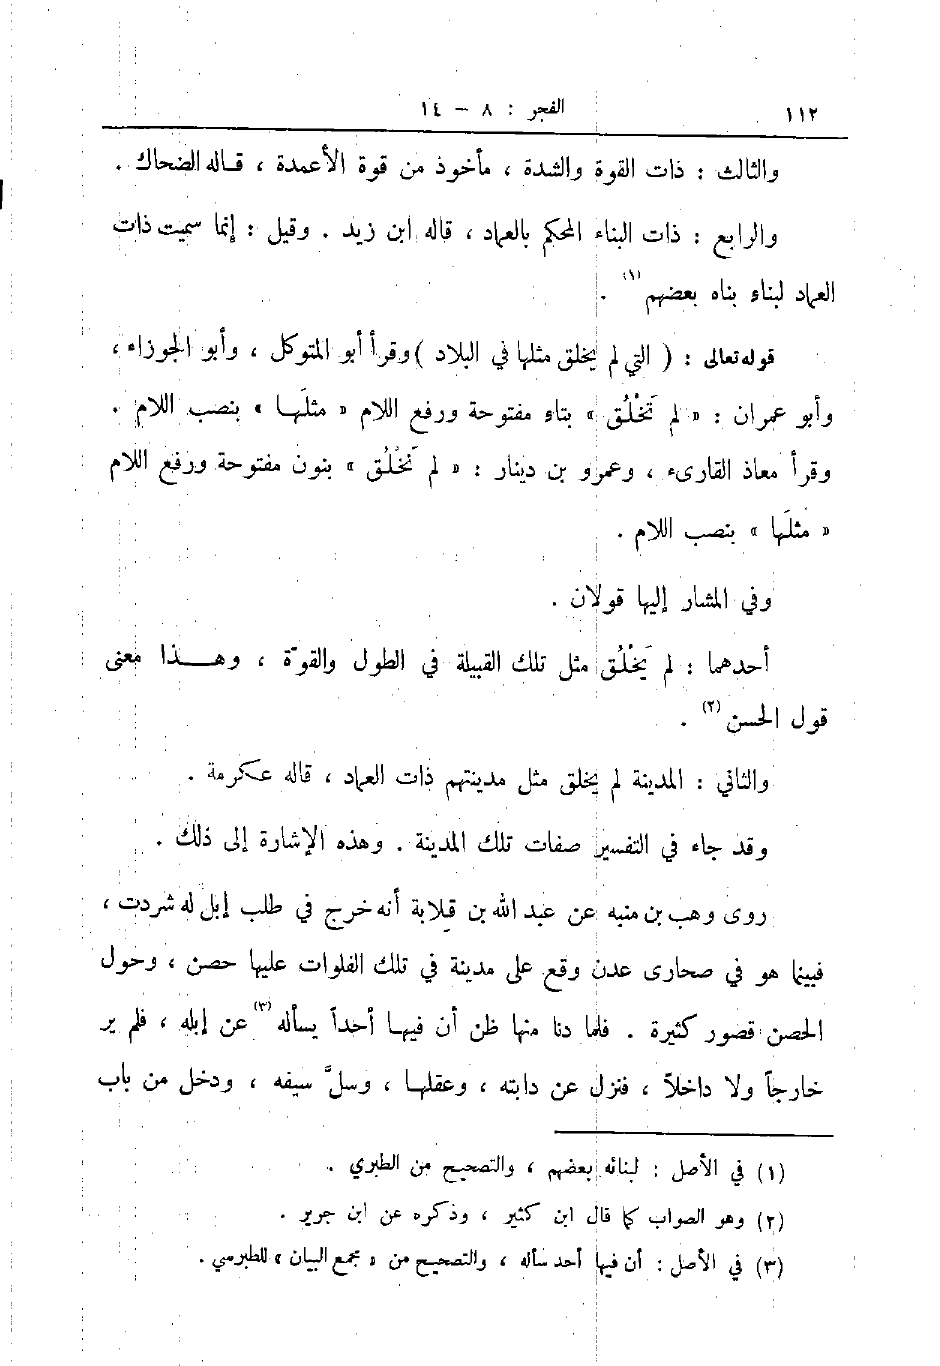 ١١٢
الفجر : ٨ - ١٤
والثالث : ذات القوة والشدة ، مأخوذ من قوة الأعمدة ، قاله الضحاك .
والرابع : ذات البناء المحكم بالعماد ، قاله ابن زيد . وقيل : إنما سميت ذات
العماد لبناء بناه بعضهم (١) .
قوله تعالى : ( التي لم يخلق مثلها في البلاد ) وقرأ أبو المتوكل ، وأبو الجوزاء ،
وأبو عمران : « لم تَخْلُق » بتاء مفتوحة ورفع اللام « مثلَها » بنصب اللام .
وقرأ معاذ القارىء ، وعمرو بن دينار : « لم نَخْلُق » بنون مفتوحة ورفع اللام
« مثلَها » بنصب اللام .
وفي المشار إليها قولان .
أحدهما : لم يَخْلُق مثل تلك القبيلة في الطول والقوّة ، وهذا معنى
قول الحسن (٢) .
والثاني : المدينة لم يخلق مثل مدينتهم ذات العماد ، قاله عكرمة .
وقد جاء في التفسير صفات تلك المدينة . وهذه الإشارة إلى ذلك .
روى وهب بن منبه عن عبد الله بن قلابة أنه خرج في طلب إبل له شردت ،
فبينما هو في صحارى عدن وقع على مدينة في تلك الفلوات عليها حصن ، وحول
الحصن قصور كثيرة . فلما دنا منها ظن أن فيها أحداً يسأله (٣) عن إبله ، فلم ير
خارجاً ولا داخلاً ، فنزل عن دابته ، وعقلها ، وسلَّ سيفه ، ودخل من باب
(١) في الأصل : لبنائه بعضهم ، والتصحيح من الطبري .
(٢) وهو الصواب كما قال ابن كثير ، وذكره عن ابن جرير .
(٣) في الأصل : أن فيها أحد سأله ، والتصحيح من « مجمع البيان » للطبرسي .